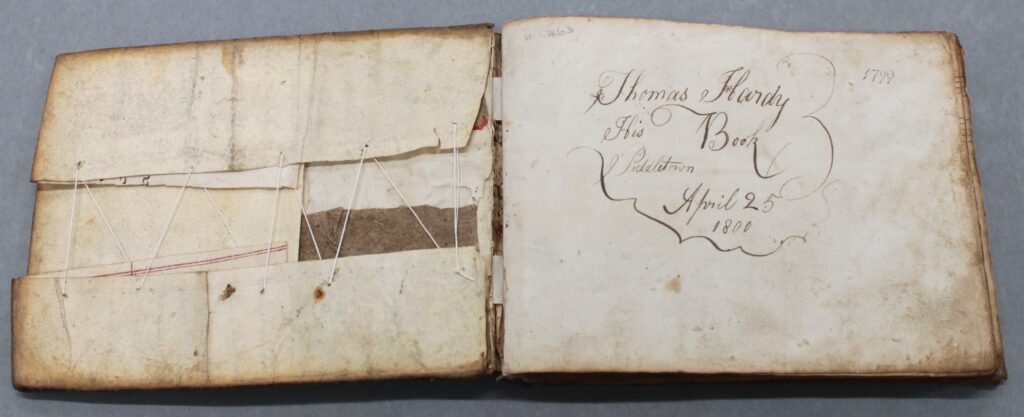 1799
Thomas Hardy
His Book
Pidaletown
April 25
1800